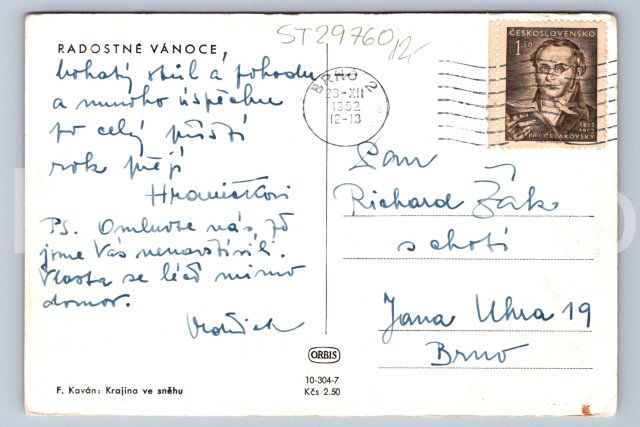 RADOSTNÉ VÁNOCE,
bohatý stůl a pohodu
a mnoho úspěchu
po celý příští
rok přejí
Hraničkovi
PS. Omluvte nás, že
jsme Vás nenavštívili.
Vlasta se léčí mimo
domov.
F. Kaván: Krajina ve sněhu
ST29760
12/-
BRNO 2
23-XII
1952
12-13
ČESKOSLOVENSKO
1.50
1852
1952
F.L. ČELAKOVSKÝ
Pan
Richard Žák
s chotí
Jana Uhra 19
Brno
ORBIS
10-304-7
Kčs 2.50